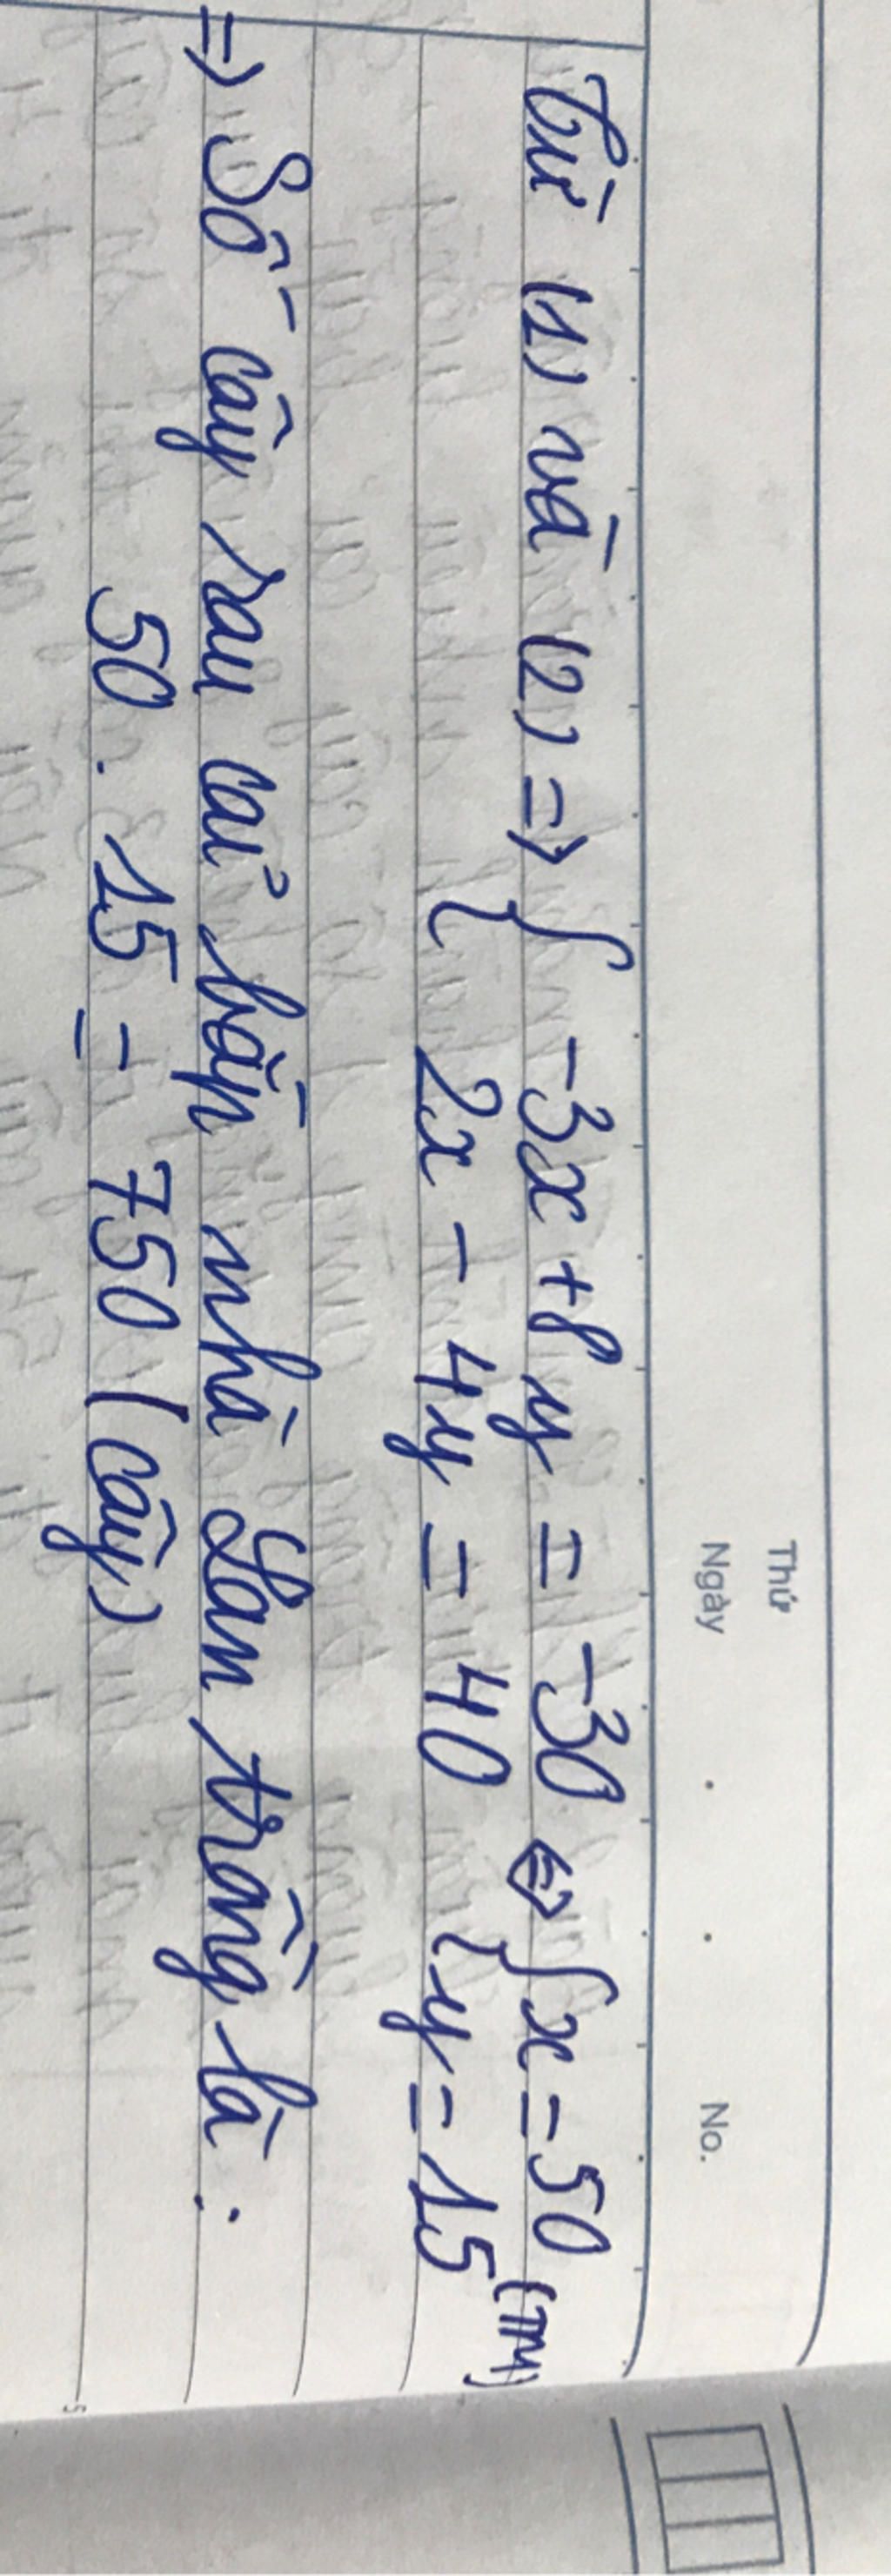 Thứ
Ngày . . No.
Từ (1) và (2) => { -3x + 8y = -30 <=> { x = 50
2x - 4y = 40 { y = 15 (TM)
=> Số cây rau cải bắp nhà Lan trồng là :
50 . 15 = 750 (cây)